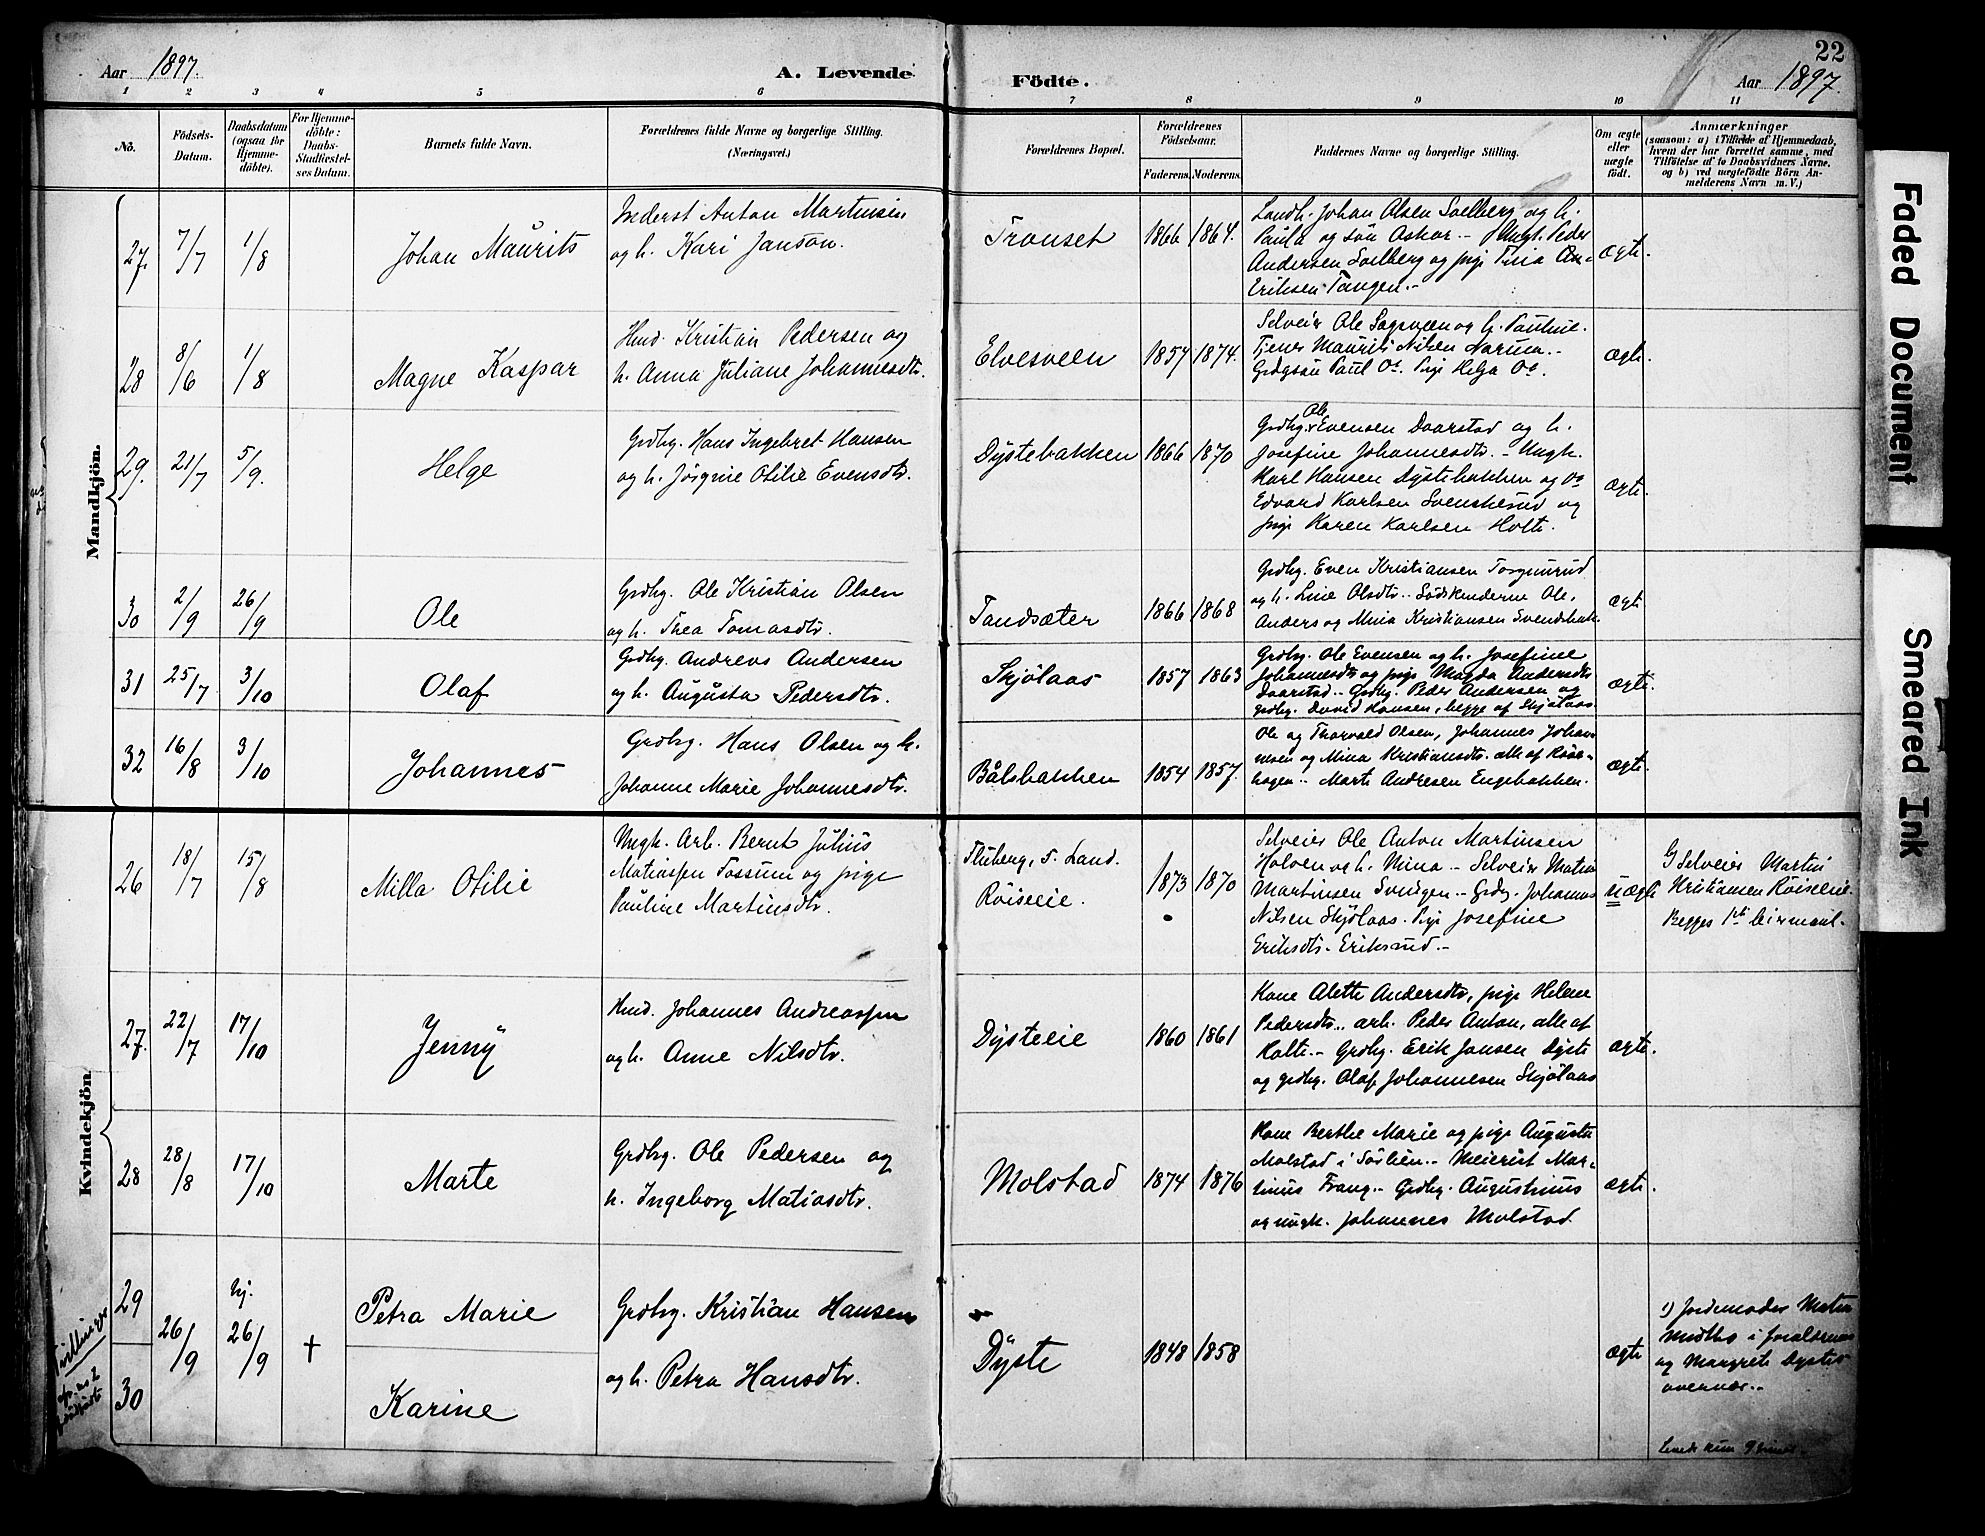 22
Aar 1897.
A. Levende
Födte.
Aar 1897.
1 2 3 4 5 6 7 8 9 10 11
No.
Födsels-
Datum.
Daabsdatum
(ogsaa for
Hjemme-
döbte).
For Hjemme-
döbte:
Daabs-
Stadfæstel-
ses Datum.
Barnets fulde Navn.
Forældrenes fulde Navne og borgerlige Stilling.
(Næringsvei.)
Forældrenes Bopæl.
Forældrenes
Födselsaar.
Faderens. Moderens.
Faddernes Navne og borgerlige Stilling.
Om ægte
eller
uægte
födt.
Anmærkninger
(saasom: a) i Tilfælde af Hjemmedaab,
hvem der har forrettet samme, med
Tilföielse af to Daabsvidners Navne,
og b) ved uægtefödte Börn An-
melderens Navn m. V.)
Mandkjön.
27. 7/7 1/8
Johan Maurits
Inderst Anton Martinsen
og h. Kari Janson.
Tronset
1866 1864.
Landh. Johan Olsen Solberg og h.
Paula og sön Oskar. - Ungk. Peder
Andersen Solberg og pige Tina An-
Eriksen Tangen. -
ægte.
28 8/6 1/8
Magne Kaspar
Hmd. Kristian Pedersen og
h. Anna Juliane Johannesdtr.
Elvesveen
1857 1874.
Selveier Ole Sagsveen og h. Pauline.
Tjener Maurits Nilsen Narum. -
Grdgsön Paul Do. Pige Helga Do.
ægte.
29. 21/7 5/9.
Helge
Grdbg. Hans Ingebret Hansen
og h. Jörgine Otilie Evensdtr.
Dystebakken
1866 1870
Ole
Grdbg. Evensen Daarstad og h.
Josefine Johannesdtr. - Ungk.
Karl Hansen Dystebakken og Do
Edvard Karlsen Svenskerud og
pige Karen Karlsen Holte.
ægte.
30 2/9 26/9
Ole
Grdbg. Ole Kristian Olsen
og h. Thea Tomasdtr.
Tandsæter
1866 1868
Grdbg. Even Kristiansen Torgunrud
og h. Line Olsdtr. - Södskenderne Ole,
Anders og Mina Kristiansen Svendsbak.
ægte
31 25/7 3/10
Olaf
Grdbg. Andreas Andersen
og h. Augusta Pedersdtr.
Skjölaas
1857 1863
Grdbg. Ole Evensen og h. Josefine
Johannesdtr og pige Magda Andersdtr
Daarstad. - Grdbg. Peder Andersen og
grdbg. David Hansen, begge af Skjölaas
ægte.
32 16/8 3/10
Johannes
Grdbg. Hans Olsen og h.
Johanne Marie Johannesdtr.
Bålsbakken
1854 1857.
Ole og Thorvald Olsen, Johannes Johan-
nesen og Mina Kristiansdtr. alle af Röse-
hagen. - Marte Andresen Engebakken.
ægte.
Kvindekjön
26 18/7 15/8
Milla Otilie
Ungk. Arb. Bernt Julius
Matiassen Fossum og pige
Pauline Martinsdtr.
Fluberg, S. Land.
Röiseeie.
1873 1870
Selveier Ole Anton Martinsen
Holven og h. Mina - Selveier Matin
Martinsen Svingen. - Grdbg. Johannes
Nilsen Skjölaas. Pige Josefine
Eriksdtr. Eriksrud. -
uægte
Selveier Martin
Kristiansen Röiseeie.
Begges 1ste leiermaal.
27. 22/7 17/10
Jenny
Hmd. Johannes Andreassen
og h. Anne Nilsdtr.
Dysteeie
1860 1861
Kone Alette Andersdtr, pige Helene
Pedersdtr., arb. Peder Anton, alle af
Holte. - Grdbg. Erik Jansen Dyste
og grdbg. Olaf Johannesen Skjölaas
ægte.
28 28/8 17/10
Marte
Grdbg. Ole Pedersen og
h. Ingeborg Matiasdtr.
Molstad
1874 1876
Kone Berthe Marie og pige Augusta
Molstad i Sörlien. - Meierist Mar-
tinus Frang. - Grdbg. Augustinus
og ungk. Johannes Molstad.
ægte.
Tvillinger
29
30
26/9
hj.
26/9
+
Petra Marie
Karine
Grdbg. Kristian Hansen
og h. Petra Hansdtr.
Dyste
1848 1858
ægte
1) Jordemoder
i forældrenes
og Margrete Dystes
overvær. -
Levede kun 9 timer.
Faded Document
Smeared Ink